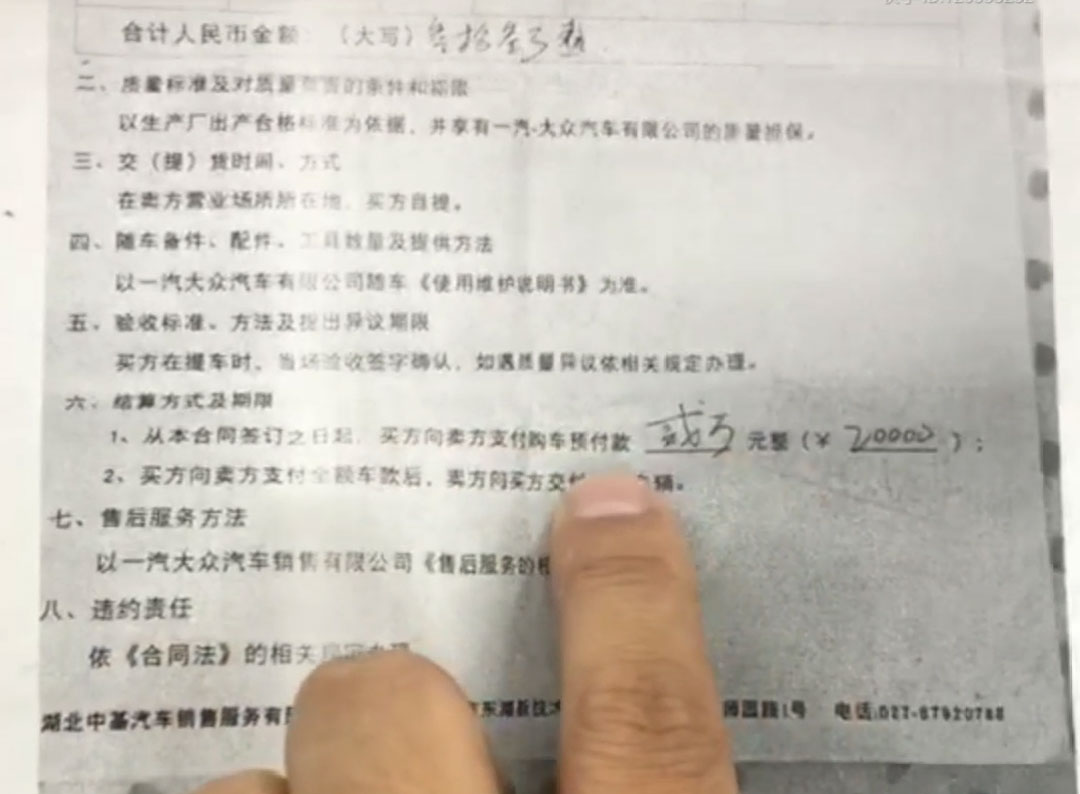 合计人民币金额：（大写）
二、质量标准及对质量负责的条件和期限
以生产厂出产合格标准为依据，并享有一汽-大众汽车有限公司的质量担保。
三、交（提）货时间、方式
在卖方营业场所所在地，买方自提。
四、随车备件、配件、工具数量及提供方法
以一汽大众汽车有限公司随车《使用维护说明书》为准。
五、验收标准、方法及提出异议期限
买方在提车时，当场验收签字确认，如遇质量异议依相关规定办理。
六、结算方式及期限
1、从本合同签订之日起，买方向卖方支付购车预付款 贰万 元整（¥ 20000 ）；
2、买方向卖方支付全额车款后，卖方向买方交付
七、售后服务方法
以一汽大众汽车销售有限公司《售后服务的相
八、违约责任
依《合同法》的相关
湖北中基汽车销售服务有 东湖新技术 园路1号 电话:027-87920788